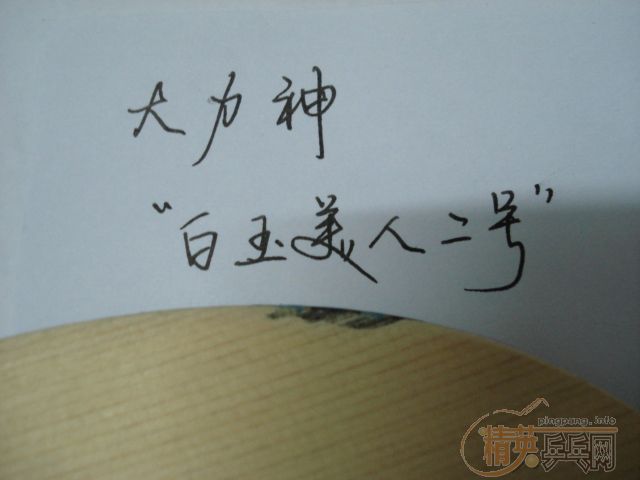 大力神
“白玉美人二号”
pingpang.info
精英乒乓网